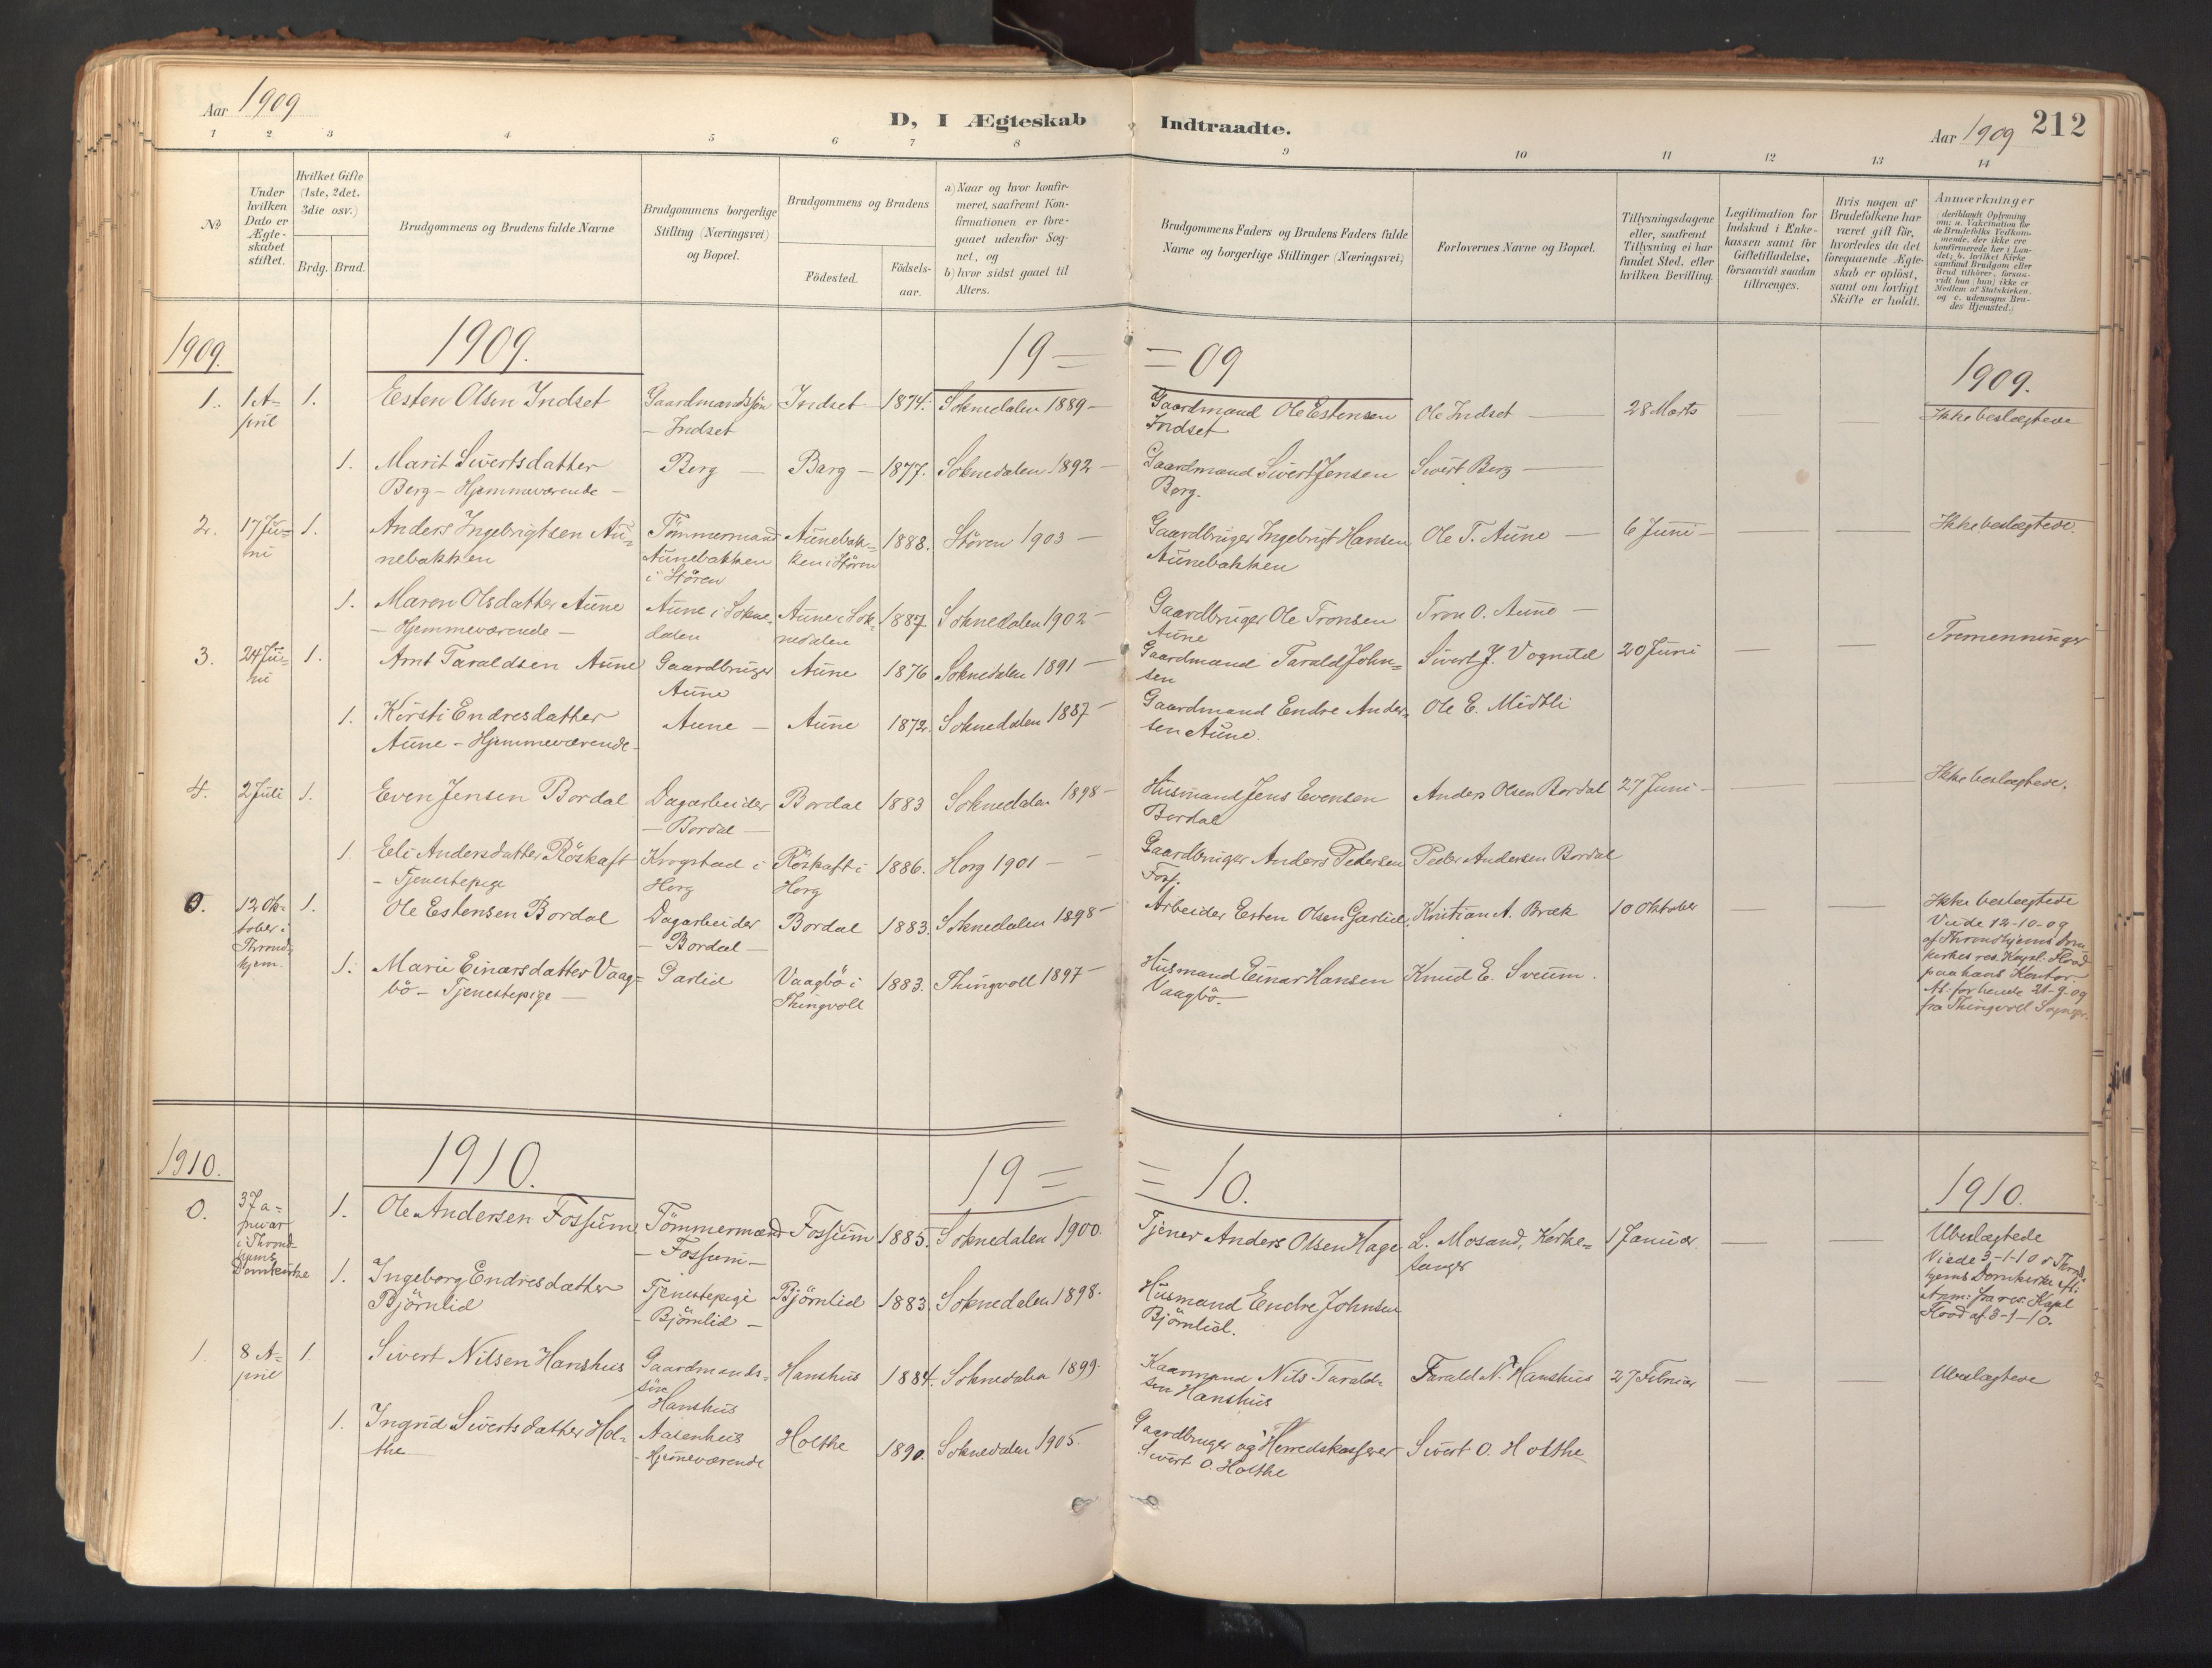 Aar 1909
D, I Ægteskab Indtraadte.
Aar 1909 212
1 2 3 4 5 6 7 8 9 10 11 12 13 14
No
Under hvilken Dato er Ægte-skabet stiftet.
Hvilket Gifte (1ste, 2det, 3die osv.)
Brdg. Brud.
Brudgommens og Brudens fulde Navne
Brudgommens borgerlige Stilling (Næringsvei) og Bopæl.
Brudgommens og Brudens
Födested.
Födsels-aar.
a) Naar og hvor konfir-
meret, saafremt Kon-
firmationen er fore-
gaaet udenfor Sog-
net, og
b) hvor sidst gaaet til
Alters.
Brudgommens Faders og Brudens Faders fulde
Navne og borgerlige Stillinger (Næringsvei)
Forlovernes Navne og Bopæl.
Tillysningsdagene
eller, saafremt
Tillysning ei har
fundet Sted, efter
hvilken Bevilling.
Legitimation for
Indskud i Enke-
kassen samt for
Giftetilladelse,
forsaavidt saadan
tiltrænges.
Hvis nogen af
Brudefolkene har
været gift för,
hvorledes da det
foregaaende Ægte-
skab er oplöst,
samt om lovligt
Skifte er holdt.
Anmærkninger
(deriblandt Oplysning
om: a. Vakcination for
de Brudefolks Vedkom-
mende, der ikke ere
konfirmerede her i Lan-
det; b. hvilket Kirke
samfund Brudgom eller
Brud tilhörer, forsaa-
vidt han (hun) ikke er
Medlem af Statskirken,
og c. udensogns Bru-
des Hjemsted.)
1909. 1909. 19= =09 1909.
1. 1 A-
pril 1. Esten Olsen Indset Gaardmandssön
– Indset Indset – 1874. Soknedalen 1889 – Gaardmand Ole Estensen
Indset Ole Indset – 28 Marts – Ikke beslægtede
1. Marit Sivertsdatter
Berg – Hjemmeværende – Berg – Barg – 1877. Soknedalen 1892 – Gaardmand Sivert Jensen
Berg. Sivert Berg –
2. 17 Ju-
ni 1. Anders Ingebrigtsen Au-
nebakken Tömmermand
Aunebakken
i Stören Aunebak-
ken i Stören 1888. Stören 1903 – Gaardbruger Ingebrigt Hansen
Aunebakken Ole T. Aune – 6 Juni – – – Ikke beslægtede.
1. Maren Olsdatter Aune
– Hjemmeværende – Aune i Sokne-
dalen Aune i Sok-
nedalen 1887 Soknedalen 1902 – Gaardbruger Ole Tronsen
Aune Tron O. Aune –
3. 24 Ju-
ni 1. Arnt Taraldsen Aune Gaardbruger
Aune Aune 1876 Soknedalen 1891 – Gaardmand Tarald John-
sen Sivert J. Vognild 20 Juni – – Tremenninger
1. Kirsti Endresdatter
Aune – Hjemmeværende – Aune – Aune 1872. Soknedalen 1887 – Gaardmand Endre Ander-
sen Aune. Ole E. Midtli
4. 2 Juli 1. Even Jensen Bordal Dagarbeider
– Bordal – Bordal 1883 Soknedalen 1898 – Husmand Jens Evensen
Bordal Anders Olsen Bordal 27 Juni – – – Ikke beslægtede.
1 Eli Andersdatter Röskaft
– Tjenestepige Krogstad i
Horg Röskaft i
Horg 1886. Horg 1901 – – Gaardbruger Anders Petersen
Foss. Peder Andersen Bordal
0. 12 Ok-
tober i
Thrond-
hjem. 1. Ole Estensen Bordal Dagarbeider
– Bordal – Bordal 1883. Soknedalen 1898 – Arbeider Esten Olsen Garlid. Kristian A. Bræk 10 Oktober – – Ikke beslægtede
Viede 12-10-09
af Throndhjems Dom-
kirkes res. Kapl. Hood
paa hans Kontor
At: for hende 21-9-09
fra Thingvoll Sognepr.
1. Marie Einarsdatter Vaag-
bö – Tjenestepige – Garlid Vaagbö i
Thingvoll 1883. Thingvoll 1897 – Husmand Einar Hansen
Vaagbö. – Knud E. Sveum.
1910. 1910. 19= =10. 1910.
0. 3 Ja-
nuar
i Thrond-
hjems
Domkirke 1. Ole Andersen Fossum Tömmermand
– Fossum – Fossum 1885. Soknedalen 1900. Tjener Anders Olsen Hage L. Mosand, Kirke-
sanger 1 Januar. – – Ubeslægtede
Viede 3-1-10 i Thrond
hjems Domkirke eft:
Anm: fra res. Kapl
Hood af 3-1-10.
1. Ingeborg Endresdatter
Björnlid Tjenestepige
– Björnlid – Björnlid 1883. Soknedalen 1898. Husmand Endre Johnsen
Björnlid.
1. 8 A-
pril 1. Sivert Nilsen Hanshus Gaardmands-
sön
Hanshus Hanshus 1884. Soknedalen 1899. Kaarmand Nils Tarald-
sen Hanshus Tarald N. Hanshus 27 Februar – – Ubeslægtede
1. Ingrid Sivertsdatter Hol-
the Aasenhus
– Hjemeværende Holthe 1890. Soknedalen 1905. Gaardbruger og Herredskasserer
Sivert O. Holthe Sivert O. Holthe